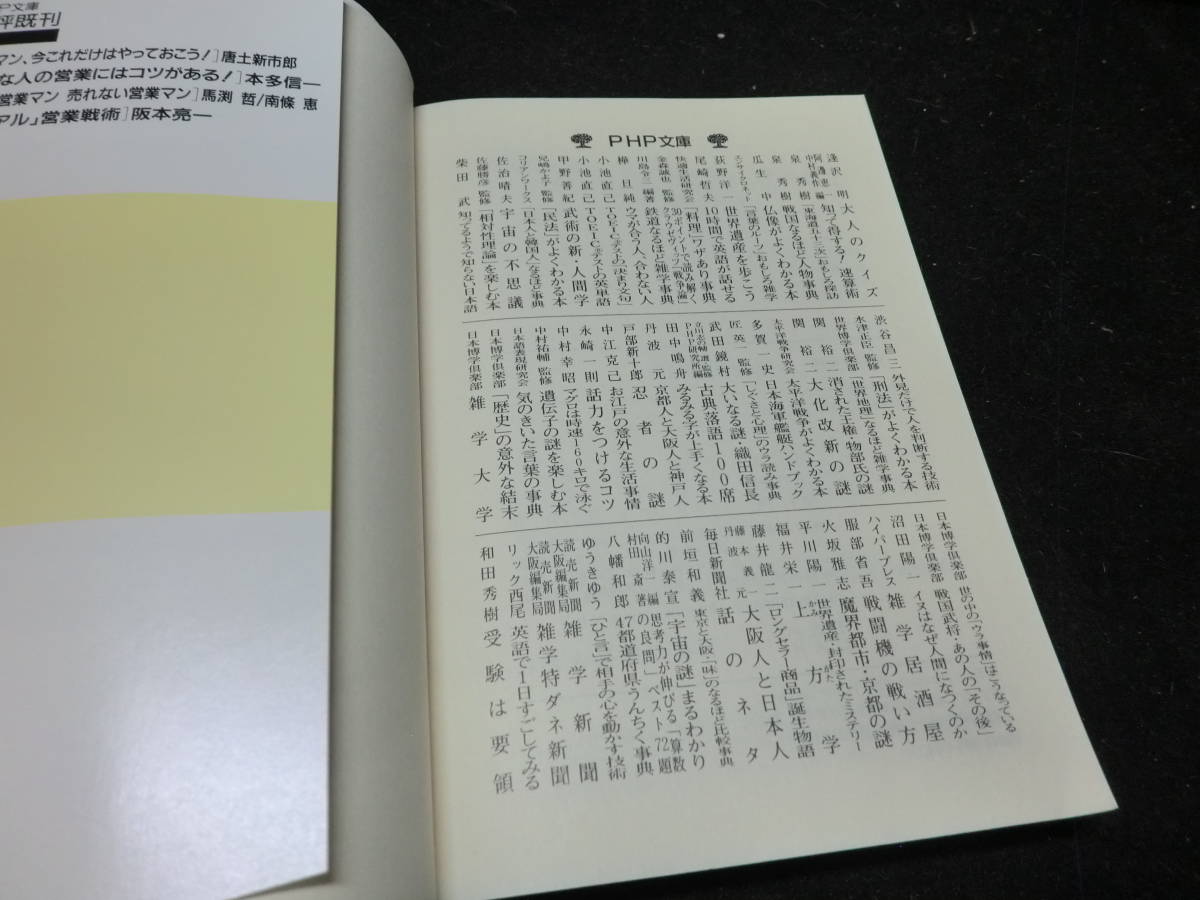 P文庫
評既刊
マン、今これだけはやっておこう！］唐土新市郎
な人の営業にはコツがある！］本多信一
営業マン 売れない営業マン］馬渕 哲/南條 恵
アル」営業戦術］阪本亮一
PHP文庫
逢沢 明 大人のクイズ
阿邊恵一 知って得する！速算術
中村義作 編 「東海道五十三次」おもしろ探訪
泉 秀樹 戦国なるほど人物事典
瓜生 中 仏像がよくわかる本
エンサイクロネット 「言葉のルーツ」おもしろ雑学
荻野洋一 世界遺産を歩こう
尾崎哲夫 10時間で英語が話せる
快適生活研究会 「料理」ワザあり事典
金森誠也 監修 30ポイントで読み解くクラウゼヴィッツ「戦争論」
川島令三 編著 鉄道なるほど雑学事典
樺 旦純 ウマが合う人、合わない人
小池直己 TOEIC®テストの「決まり文句」
小池直己 TOEIC®テストの英単語
甲野善紀 武術の新・人間学
兒嶋かよ子 監修 「民法」がよくわかる本
コリアンワークス 「日本人と韓国人」なるほど事典
佐治晴夫 宇宙の不思議
佐藤勝彦 監修 「相対性理論」を楽しむ本
柴田 武 知ってるようで知らない日本語
渋谷昌三 外見だけで人を判断する技術
水津正臣 監修 「刑法」がよくわかる本
世界博学倶楽部 「世界地理」なるほど雑学事典
関 裕二 消された王権・物部氏の謎
関 裕二 大化改新の謎
太平洋戦争研究会 太平洋戦争がよくわかる本
多賀一史 日本海軍艦艇ハンドブック
匠 英一 監修 「しぐさと心理」のウラ読み事典
武田鏡村 大いなる謎・織田信長
立川志の輔 選・監修 PHP研究所 編 古典落語100席
田中鳴舟 みるみる字が上手くなる本
丹波 元 京都人と大阪人と神戸人
戸部新十郎 忍者の謎
中江克己 お江戸の意外な生活事情
永崎一則 話力をつけるコツ
中村幸昭 マグロは時速160キロで泳ぐ
中村祐輔 監修 遺伝子の謎を楽しむ本
日本語表現研究会 気のきいた言葉の事典
日本博学倶楽部 「歴史」の意外な結末
日本博学倶楽部 雑学大学
日本博学倶楽部 世の中の「ウラ事情」はこうなっている
日本博学倶楽部 戦国武将・あの人の「その後」
沼田陽一 イヌはなぜ人間になつくのか
ハイパープレス 雑学居酒屋
服部省吾 戦闘機の戦い方
火坂雅志 魔界都市・京都の謎
平川陽一 世界遺産・封印されたミステリー
福井栄一 上方学
藤井龍二 「ロングセラー商品」誕生物語
藤本義一 丹波 元 大阪人と日本人
毎日新聞社 話のネタ
前垣和義 東京と大阪・「味」のなるほど比較事典
的川泰宣 「宇宙の謎」まるわかり
向山洋一 編 村田 斎 著 思考力が伸びる「算数の良問」ベスト72題
八幡和郎 47都道府県うんちく事典
ゆうきゆう 「ひと言」で相手の心を動かす技術
読売新聞大阪編集局 雑学新聞
読売新聞大阪編集局 雑学特ダネ新聞
リック西尾 英語で1日すごしてみる
和田秀樹 受験は要領